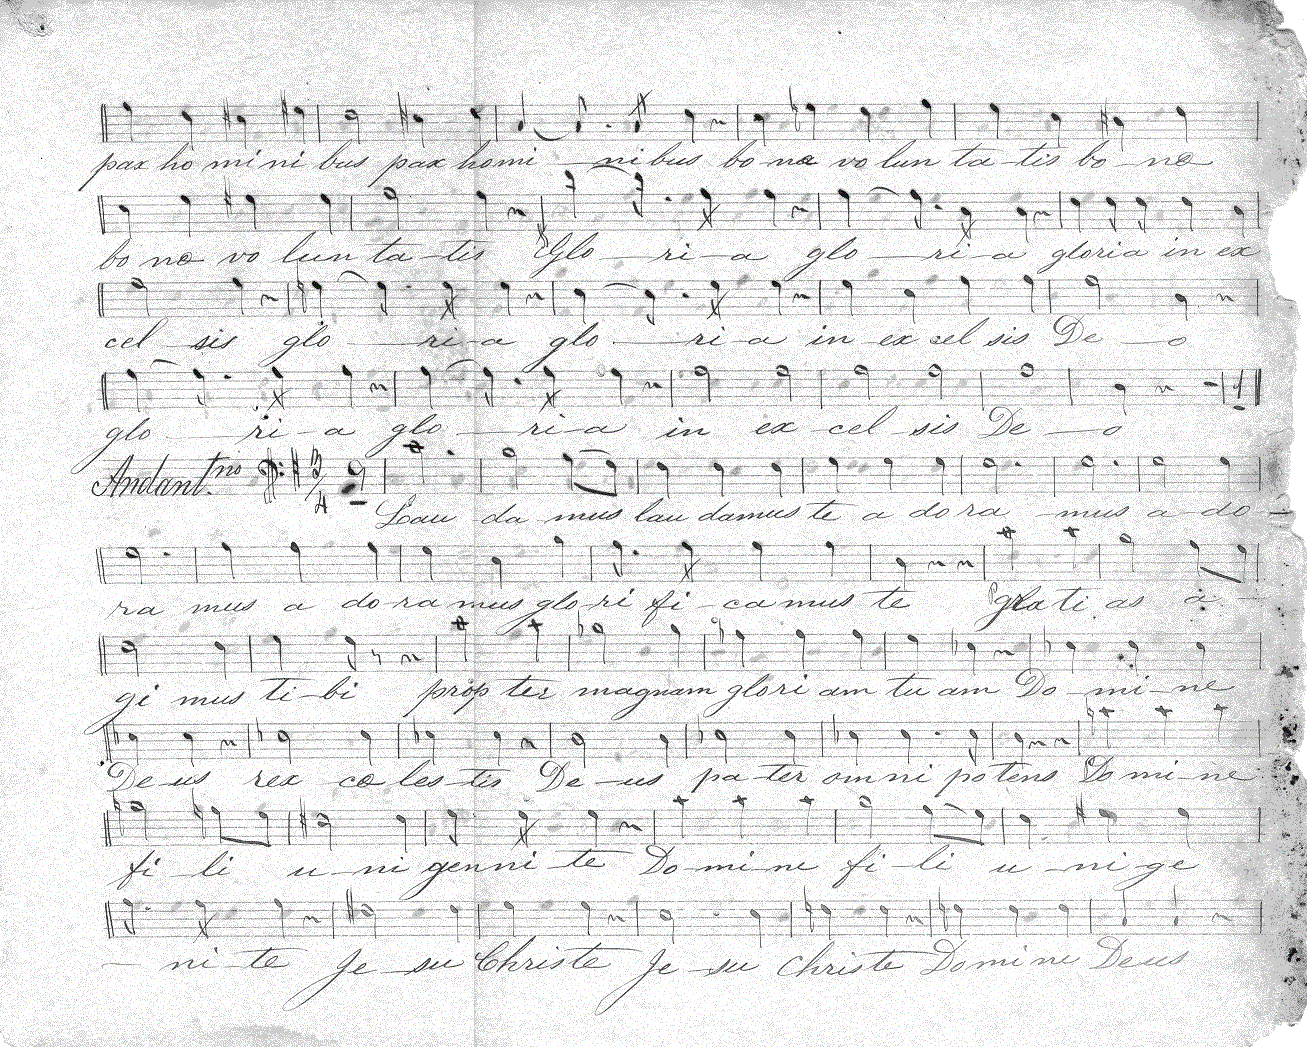 pax ho mi ni bus pax homi — ni bus bo næ vo lun ta - tis bo - næ
bo næ vo lun ta - tis Glo — ri - a glo — ri - a gloria in ex
cel - sis glo — ri - a glo — ri - a in ex cel sis De — o
glo — ri - a glo — ri - a in ex - cel - sis De — o
Andant.no 3/4
Lau - da - mus lau damus te a do ra - mus a - do -
ra mus a do - ra mus glo ri fi - ca mus te gra ti as a -
gi mus ti - bi prop ter magnam glori am tu am Do - mi - ne
De - us rex cœ les - tis De - us pa - ter omni potens Do mi - ne
fi - li u - ni genni - te Do - mi - ne fi - li u - ni - ge
- ni - te Je - su Christe Je - su Christe Domine Deus